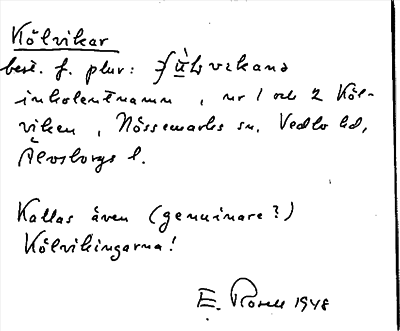 Kölvikar
best. f. plur:
inkolentnamn, nr 1 och 2 Köl-
viken, Nössemarks sn, Vedbo hd,
Älvsborgs l.
Kallas även (genuinare?)
Kölvikingarna!
E. Rosell 1948